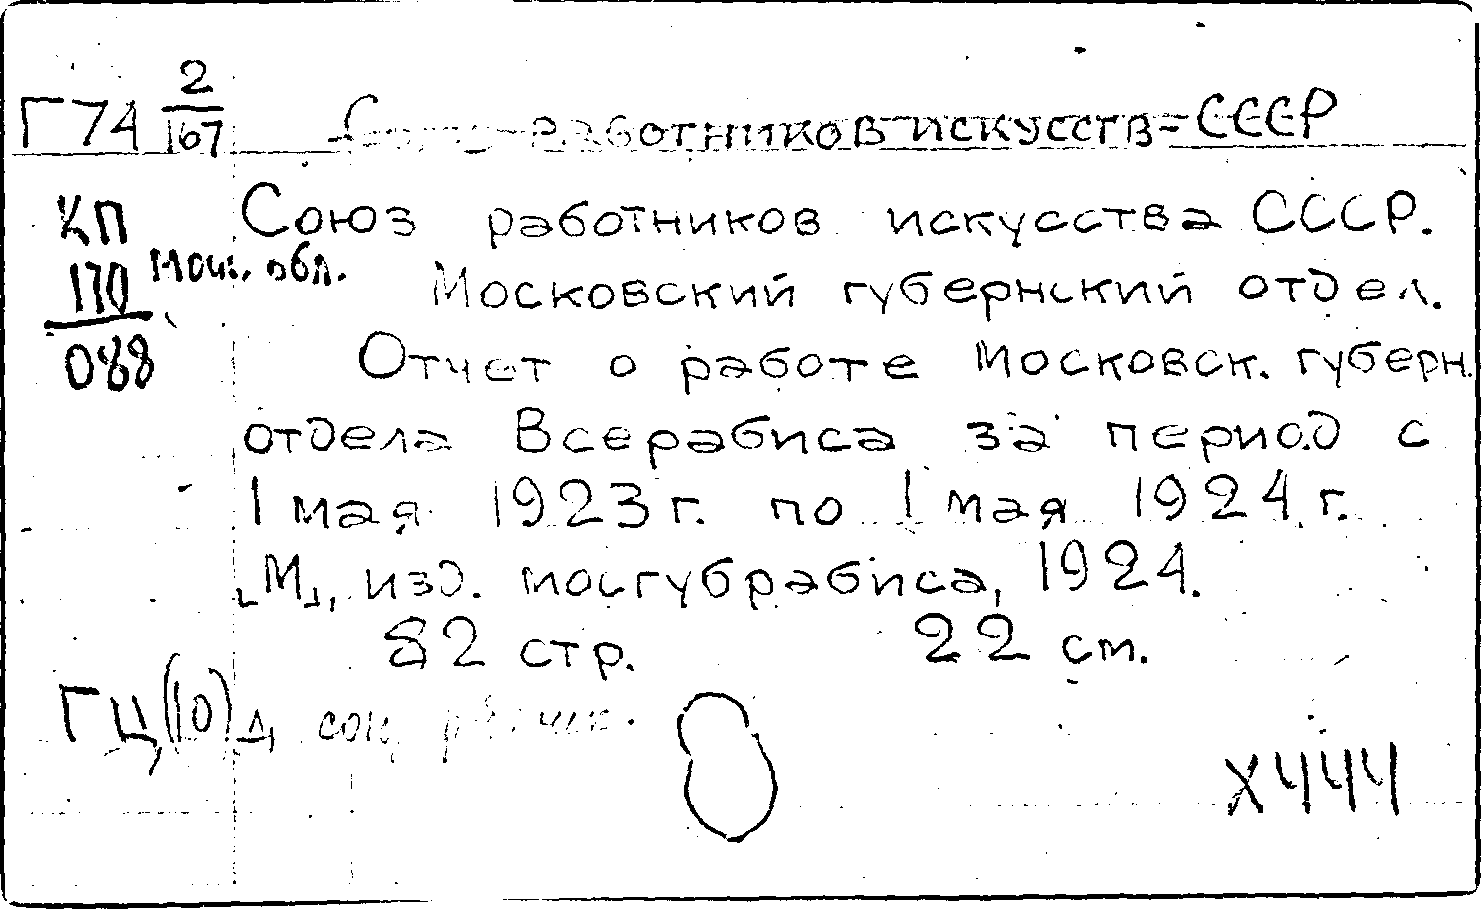 Г74 2/167 Союз работников искусств СССР
КП
170
088
Моск. обл.
Союз работников искусства СССР.
Московский губернский отдел.
Отчет о работе Московск. губерн.
отдела Всерабиса за период с
1 мая 1923 г. по 1 мая 1924 г.
[М], изд. мосгубрабиса, 1924.
82 стр. 22 см.
ГЦ(10)
X444